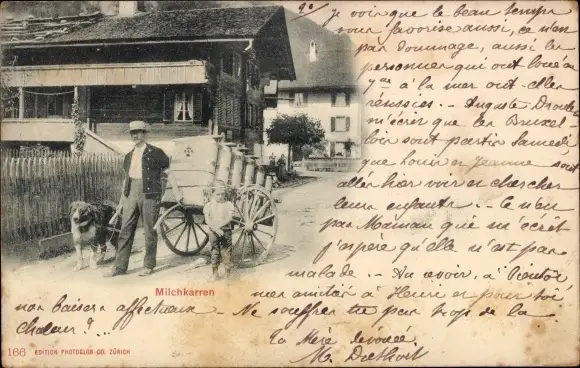 Je vois que le beau temps
vous favorise aussi, ce n'est
pas dommage, aussi les
personnes qui ont loué à
à la mer ont-elles
réussies. - Auguste
m'écrit que les Bruxel-
lois sont partis Samedi
que Louis et Jeanne sont
allés hier voir et chercher
leurs enfants. - Ce n'est
pas Maman qui m'écrit
j'espère qu'elle n'est pas
malade. - Au revoir, à bientôt
mes amitiés à Henri et pour toi
mon baiser affectueux. Ne souffres tu pas trop de la
chaleur? ...
ta Mère dévouée
M.
Milchkarren
166 EDITION PHOTOGLOB CO. ZÜRICH